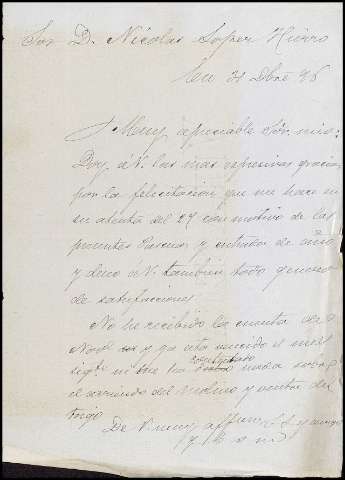 Sor D. Nicolas Lopez Hierro
En 31 Dbre 96
Muy apreciable Sor. mio:
Doy á V. las mas espresivas gracias
por la felicitacion que me hace en
su atenta del 27 con motivo de las
presentes Pascuas y entrada de año
y deseo á V. tambien todo genero
de satisfacciones
No he recibido la cuenta de
Novbre y ya esta vencido el mes
sigte ni me ha contestado nada sobre
el arriendo del Molino y
De V. muy affmo S. S. y amigo
q. b. s. m.